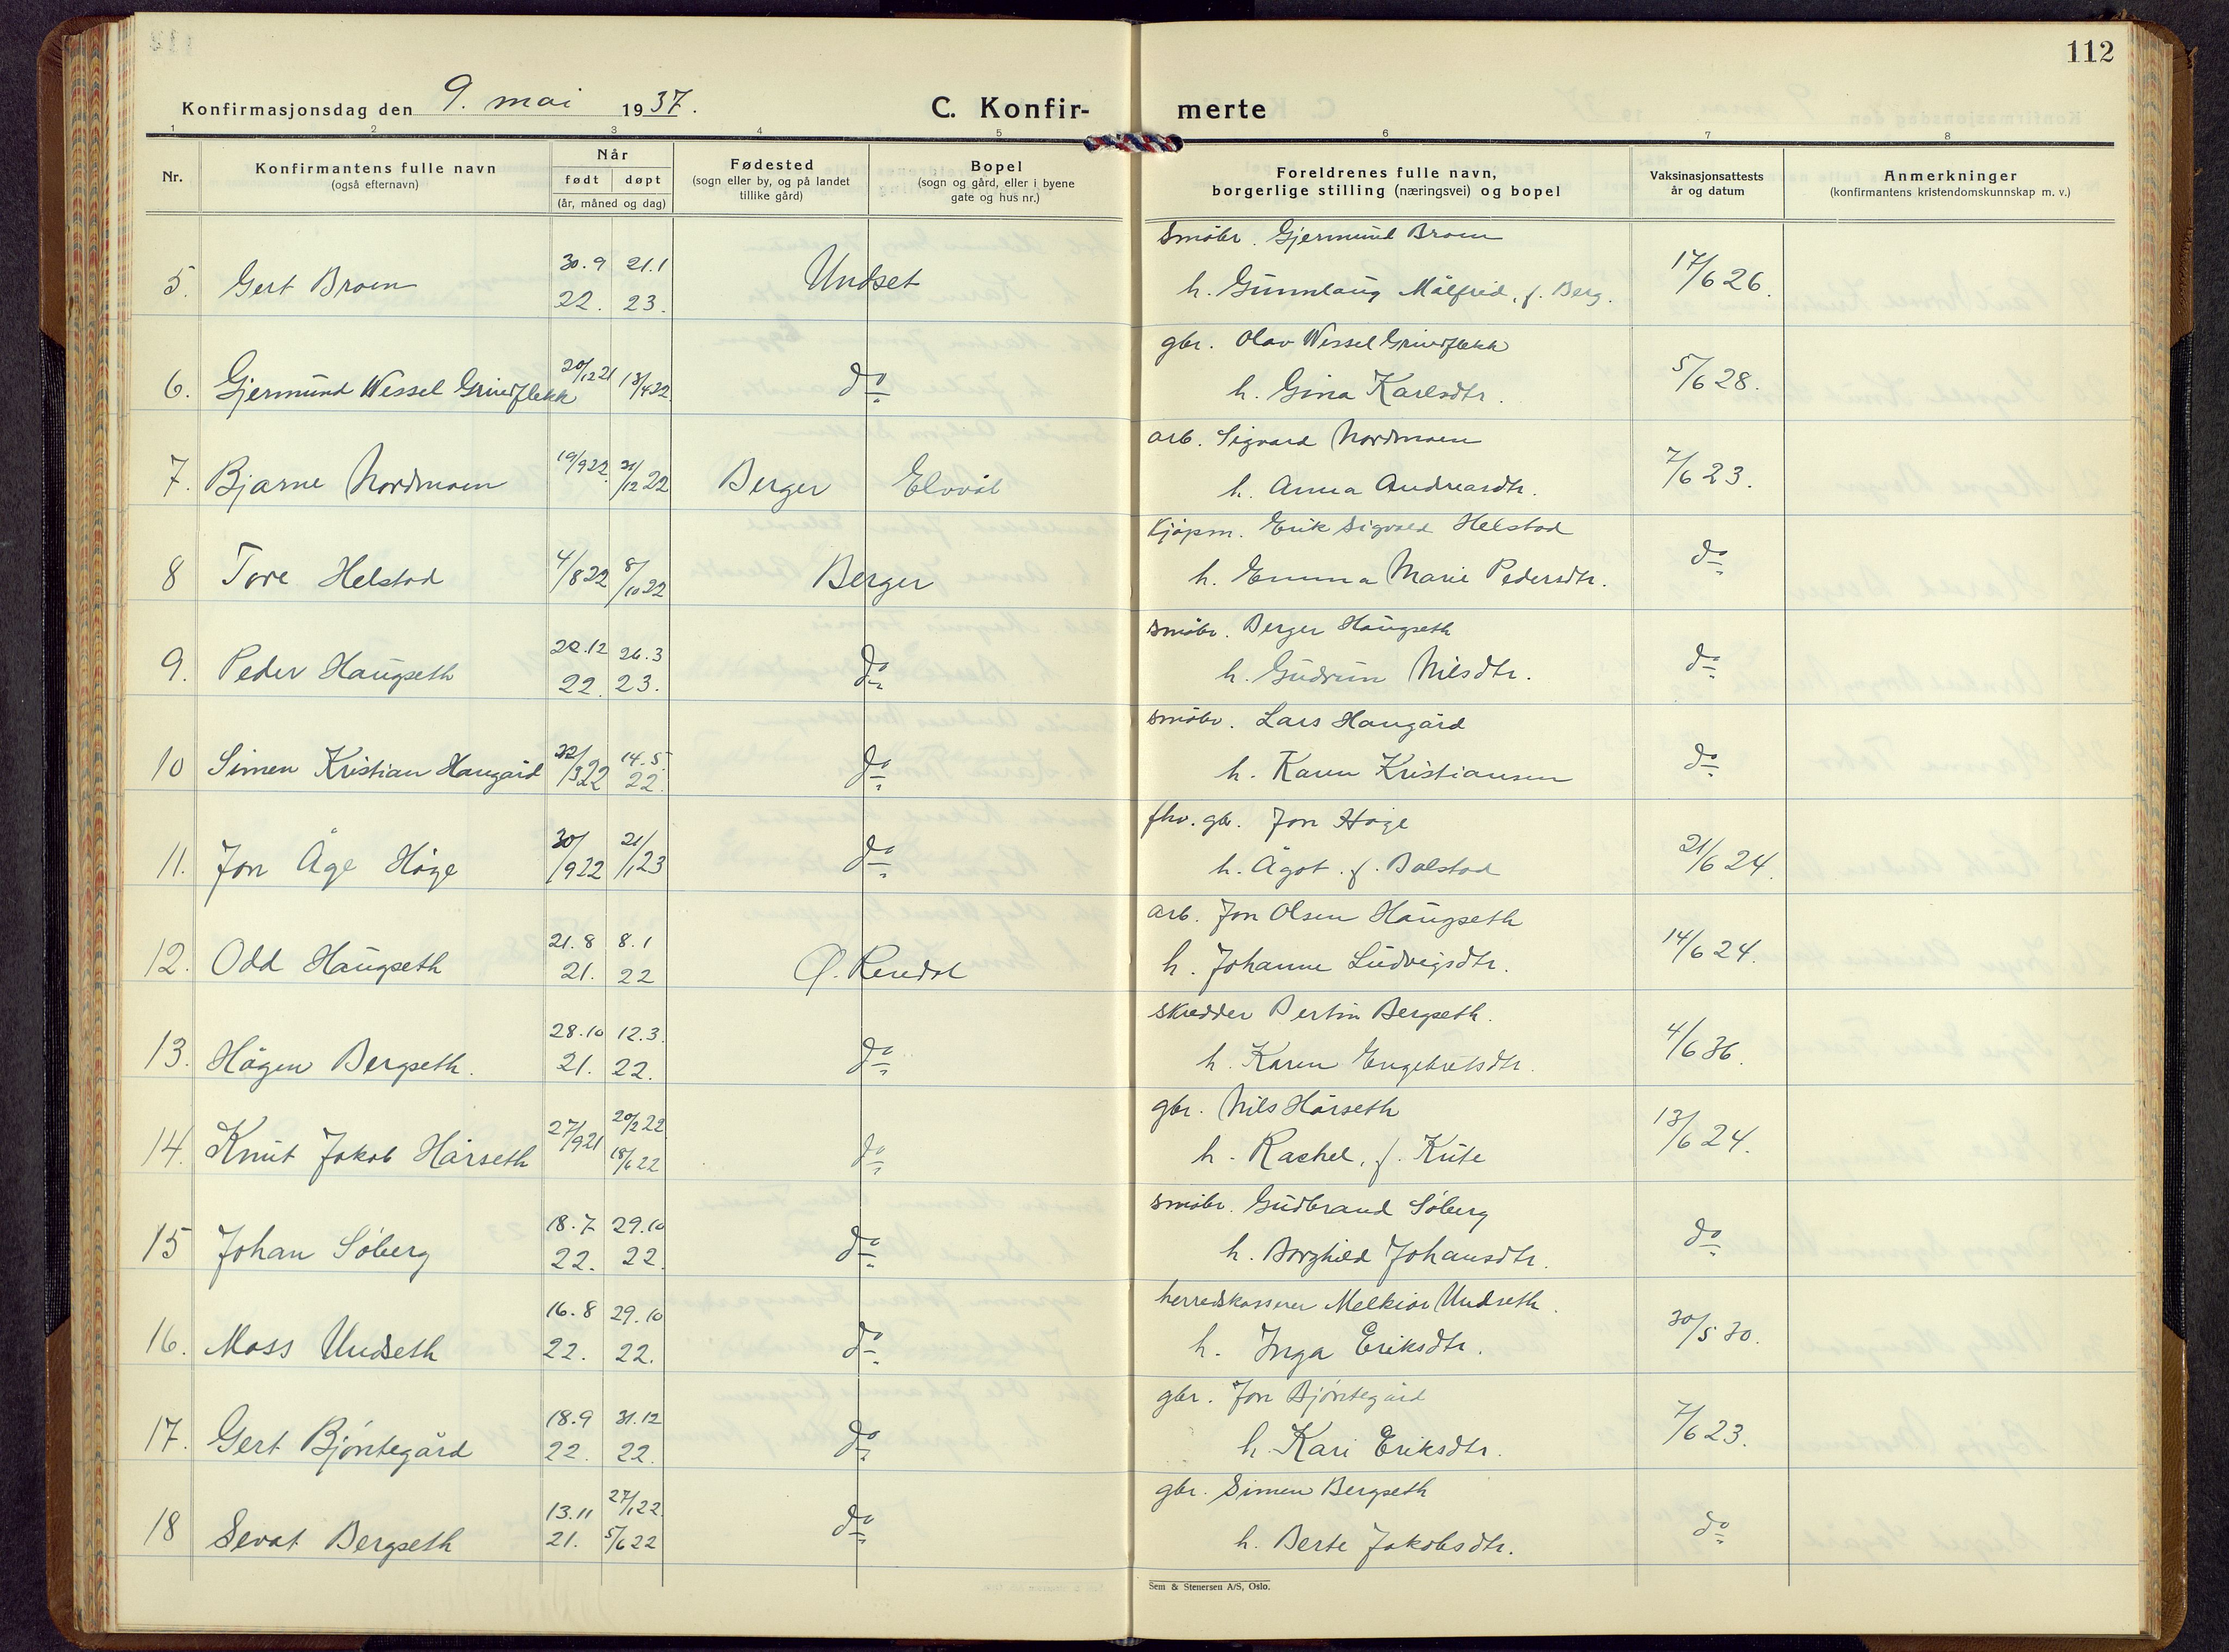 112
Konfirmasjonsdag den 9. mai 1937.
C. Konfir- merte
1 2 3 4 5 6 7 8
Nr.
Konfirmantens fulle navn
(også efternavn)
Når
født døpt
(år, måned og dag)
Fødested
(sogn eller by, og på landet
tillike gård)
Bopel
(sogn og gård, eller i byene
gate og hus nr.)
Foreldrenes fulle navn,
borgerlige stilling (næringsvei) og bopel
Vaksinasjonsattests
år og datum
Anmerkninger
(konfirmantens kristendomskunnskap m. v.)
småbr. Gjermund Broen
30.9 21.1
5. Gert Broen Undset 17/6 26.
22. 23. h. Gunnlaug Målfrid, f. Berg.
gbr. Olav Wessel Grindflekk
20/12 21 13/4 22
6. Gjermund Wessel Grindflekk do h. Gina Karlsdtr. 5/6 28.
arb. Sigvard Nordmoen
19/9 22 21/12 22
7. Bjarne Nordmoen Berger Elvål h. Anna Andreasdtr. 7/6 23.
Kjøpm. Erik Sigvald Helstad
8 Tore Helstad 4/8 22 8/10 22 Berger h. Emma Marie Pedersdtr. do
småbr. Berger Haugseth
22.12 26.3
9. Peder Haugseth do h. Gudrun Nilsdtr. do
22. 23.
småbr. Lars Haugård
14.5
10 Simen Kristian Haugård 22/3 22 22. do h. Karen Kristiansen do
fhv. gbr. Jon Høge
11. Jon Åge Høge 30/9 22 21/1 23 do h. Ågot. f. Balstad 21/6 24.
arb. Jon Olsen Haugseth
21.8 8.1
12. Odd Haugseth Ø. Rendal h. Johanne Ludvigsdtr. 14/6 24.
21. 22
skredder Bertin Bergseth.
28.10 12.3.
13. Hågen Bergseth. do h. Karen Engebretsdtr. 4/6 36.
21. 22.
gbr. Nils Hårseth
27/9 21 20/2 22
14. Knut Jakob Hårseth 18/6 22 do h. Rachel, f. Kute 13/6 24.
småbr. Gudbrand Søberg
18.7 29.10
15 Johan Søberg do h. Borghild Johansdtr. do
22. 22.
herredskasserer Melkior Undseth.
16.8 29.10
16. Mass Undseth do h. Inga Eriksdtr. 30/5 30.
22. 22.
gbr. Jon Bjøntegård
18.9 31.12
17. Gert Bjøntegård do h. Kari Eriksdtr. 7/6 23.
22. 22.
gbr. Simen Bergseth
13.11 27/1 22.
18 Sevat Bergseth 21. 5/6 22 do h. Berte Jakobsdtr. do
Sem & Stenersen A/S, Oslo.